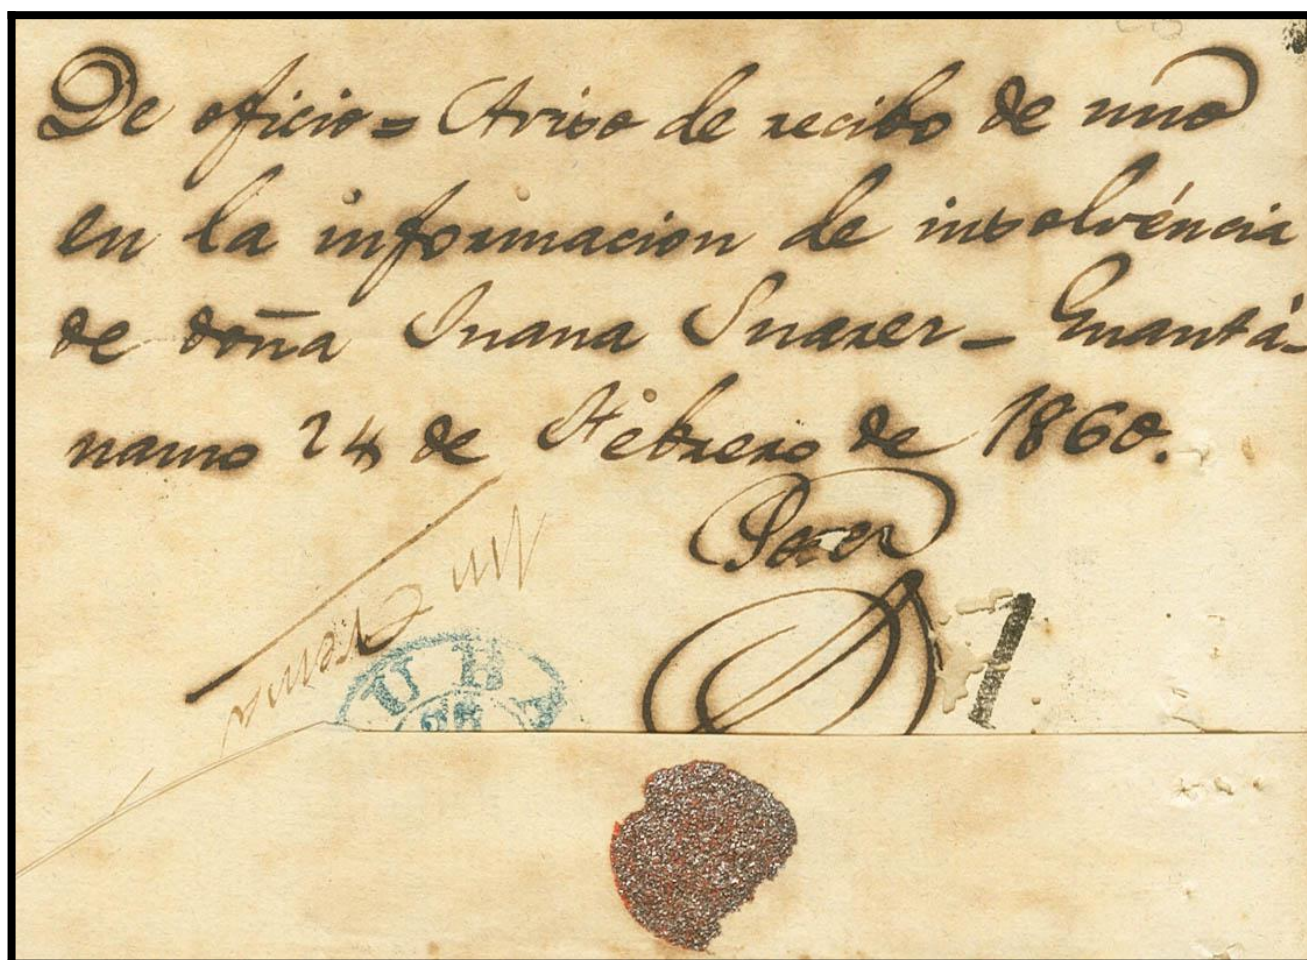 De oficio = Aviso de recibo de uno
en la informacion de insolvéncia
de doña Juana Suarer - Guantá-
namo 24 de Febrero de 1860.
UBA
1